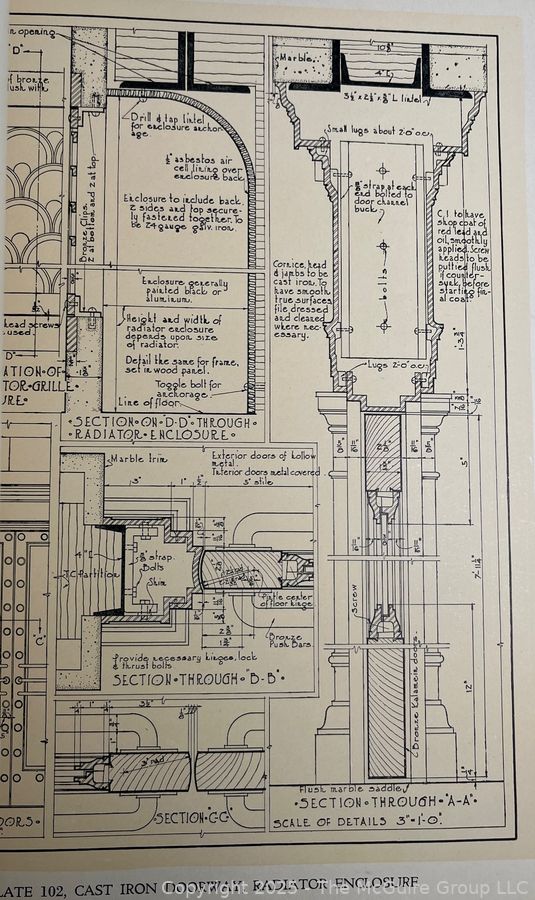 n opening
"D"
of bronze
flush with
Bronze Clips.
2 at bottom and 2 at top.
head screws
used.
D"
ATION-OF
TOR-GRILLE
URE.
Drill & tap lintel
for enclosure anchor
age.
½" asbestos air
cell lining over
enclosure back
Enclosure to include back,
2 sides and top secure-
ly fastened together. To
be 24 gauge galv. iron.
Enclosure generally
painted black or
aluminum.
Height and width of
radiator enclosure
depends upon size
of radiator.
Detail the same for frame,
set in wood panel.
Toggle bolt for
anchorage.
Line of floor.
•SECTION•ON•D-D•THROUGH•
•RADIATOR•ENCLOSURE•
Marble.
4"C
3½"x2½"x⅜"L lintel.
Small lugs about 2'-0" o.c.
strap at each
end bolted to
door channel
buck.
bolts
Cornice, head
& jambs to be
cast iron. To
have smooth
true surfaces
file dressed
and cleaned
where nec-
essary.
C.I. to have
shop coat of
red lead and
oil, smoothly
applied. Screw
heads to be
puttied flush
if counter-
sunk, before
starting fin-
al coat.
1'-3¾"
Lugs 2'-0" o.c.
5"
7'-11¼"
Screw
12"
Bronze Kalamein doors.
Flush marble saddle
•SECTION•THROUGH•"A-A"•
SCALE OF DETAILS 3"=1'-0".
Marble trim
Exterior doors of hollow
metal.
Interior doors metal covered
3"
1"
5" stile
4"C
strap.
Bolts
T.C. Partition
Shim
Pintle center
of floor hinge.
Bronze
Push Bars.
Provide necessary hinges, lock
& thrust bolts
SECTION•THROUGH•"B-B"•
"C"
1"
3½"
3" rad
•SECTION•"C-C"
OORS•
LATE 102, CAST IRON DOORWAY, RADIATOR ENCLOSURE
Copyright 2025 The McGuire Group LLC